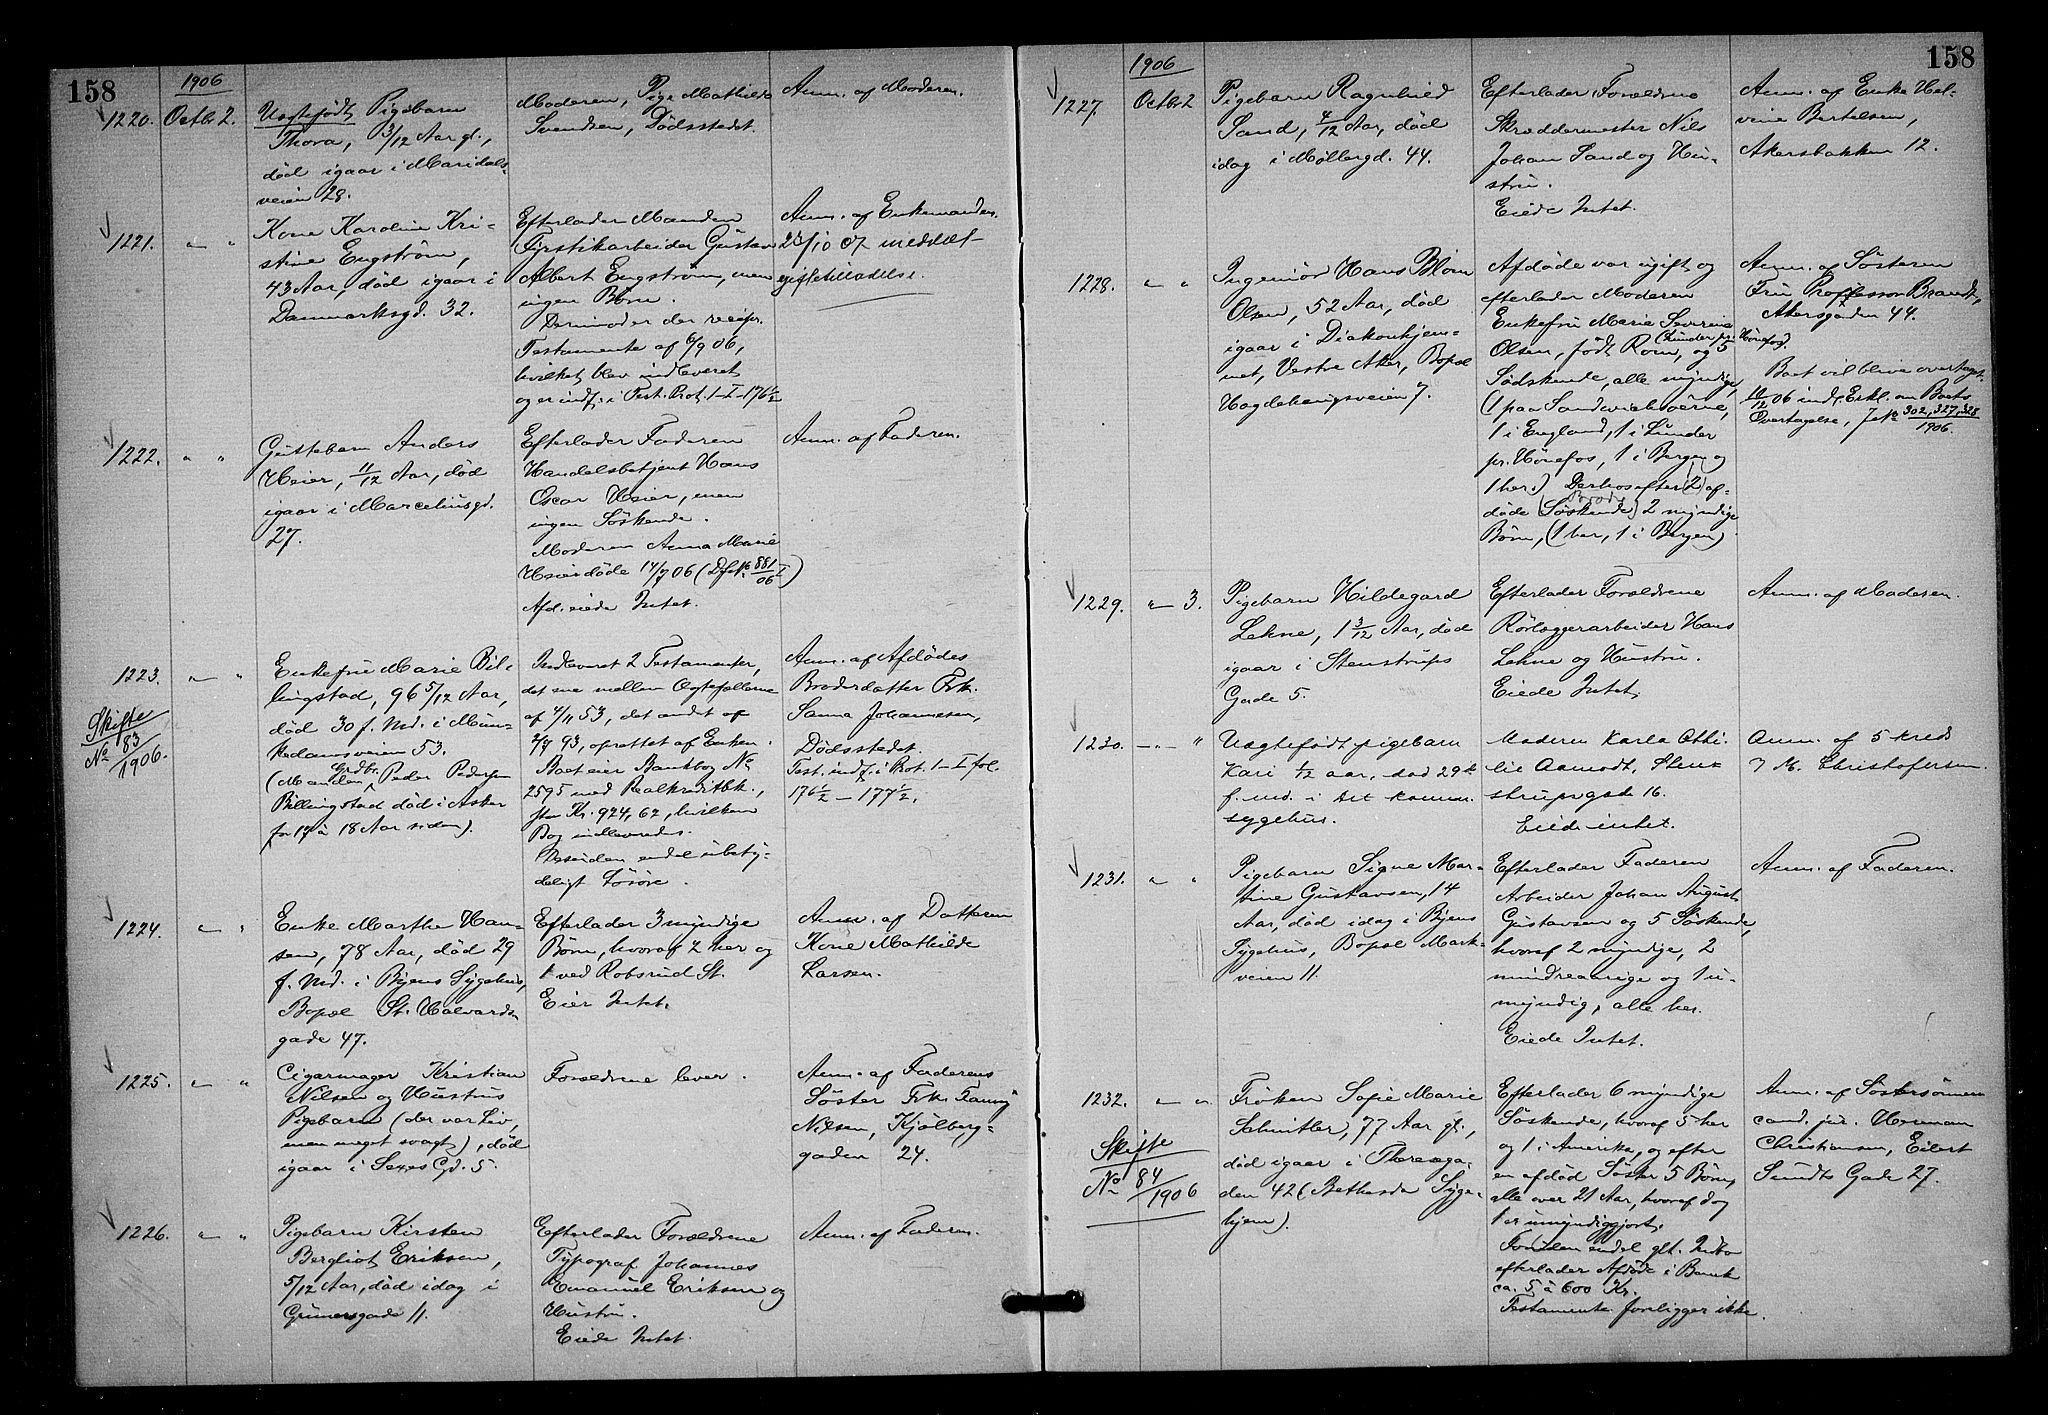 158
1906
1220. Octbr 2. Uægtefødt Pigebarn
Thora, 3/12 Aar gl.,
død igaar i Maridals-
veien 28.
Moderen, Pige Mathilde
Svendsen, Dødsstedet.
Anm. af Moderen.
1221. " " Kone Karoline Kri-
stine Engström,
43 Aar, død igaar i
Danmarksgd. 32.
Efterlader Manden
Fyrstikarbeider Gustav
Albert Engström, men
ingen Børn.
Derimoder der recipr.
Testamente af 6/9 06,
hvilket blev indleveret
og er indf. i Test. Prot. 1-I-176 1/2
Anm. af Enkemanden.
23/10 07 meddelt
giftetilladelse.
1222. " " Guttebarn Anders
Heier, 11/12 Aar, død
igaar i Marceliusgd.
27.
Efterlader Faderen
Handelsbetjent Hans
Oscar Heier, men
ingen Søskende.
Moderen Anna Marie
Heier døde 14/7 06 (Df. № 881/06 I)
Afd. eiede Intet.
Anm. af Faderen.
1223. " " Enkefru Marie Bil-
lingstad, 96 5/12 Aar,
død 30 f. Md. i Mun-
kedamsveien 53.
(Manden Grdbr. Peder Pedersen
Billingstad død i Asker
for 17 à 18 Aar siden).
Skifte
№ 83/1906.
Indleveret 2 Testamenter,
det ene mellem Ægtefællerne
af 4/11 53, det andet af
2/7 93, oprettet af Enken.
Boet eier Bankbog №
2595 med Realkreditbk.,
stor Kr. 924,62, hvilken
Bog indleveredes.
Desuden endel ubety-
deligt Løsøre.
Anm. af Afdødes
Broderdatter Frk.
Sanna Johannesen,
Dødsstedet.
Test. indf. i Prot. 1-I fol.
176 1/2 - 177 1/2.
1224. " " Enke Marthe Han-
sen, 78 Aar, død 29
f. Md. i Byens Sygehus,
Bopæl St. Halvards
gade 47.
Efterlader 3 myndige
Børn, hvoraf 2 her og
1 ved Robsrud St.
Eier Intet.
Anm. af Datteren
Kone Mathilde
Larsen.
1225. " " Cigarmager Kristian
Nilsen og Hustrus
Pigebarn (der var Liv,
men meget svagt), død
igaar i Saxes Gd. 5.
Forældrene lever.
Anm. af Faderens
Søster Frk. Fanny
Nilsen, Kjølberg-
gaden 24.
1226. " " Pigebarn Kirsten
Bergliot Eriksen,
5/12 Aar, død idag i
Grünersgade 11.
Efterlader Forældrene
Typograf Johannes
Emanuel Eriksen og
Hustru.
Eiede Intet.
Anm. af Faderen.
158
1906
1227. Octbr 2 Pigebarn Ragnhild
Sand, 4/12 Aar, død
idag i Møllergd. 44.
Efterlader Forældrene
Skræddermester Nils
Johan Sand og Hu-
stru.
Eiede Intet.
Anm. af Enke Hel-
vine Bertelsen,
Akersbakken 12.
1228. " " Ingeniør Hans Blom
Olsen, 52 Aar, død
igaar i Diakonhjem-
met, Vestre Aker, Bopæl
Hægdehaugsveien 7.
Afdøde var ugift og
efterlader Moderen
Enkefru Marie Severine
Olsen, født Rom, (Lunder pr. Hønefos)
og 5
Sødskende, alle myndige,
(1 paa Sandwichøerne,
1 i England, 1 i Lunder
pr. Hønefos, 1 i Bergen og
1 her.) Derhos efter (2) af-
døde (Søskende) Brødr. 2 myndige
Børn, (1 her, 1 i Bergen)
Anm. af Søsteren
Fru Professor Brandt,
Akersgaden 44.
Boet vil blive overtaget.
11/12 06 indk. Erkl. om Boets
Overtagelse, J. № 302, 327, 328/1906.
1229. " 3. Pigebarn Hildegard
Lehne, 1 3/12 Aar, død
igaar i Stenstrups
Gade 5.
Efterlader Forældrene
Rørlæggerarbeider Hans
Lehne og Hustru.
Eiede Intet.
Anm. af Moderen.
1230. " " Uægtefødt pigebarn
Kari 1/12 aar, død 29de
f. md. i det komm.
sygehus.
Moderen Karla Othi-
lie Aamodt, Sten-
strupsgade 16.
Eiede intet.
Anm. af 5 kreds
v M. Christofersen.
1231. " " Pigebarn Signe Mar-
tine Gustavsen, 14
Aar, død idag i Byens
Sygehus, Bopæl Mark-
veien 11.
Efterlader Faderen
Arbeider Johan August
Gustavsen og 5 Søskende,
hvoraf 2 myndige, 2
mindreaarige og 1 u-
myndig, alle her.
Eiede Intet.
Anm. af Faderen.
1232. " " Frøken Sofie Marie
Schnitler, 77 Aar gl.,
død igaar i Theresega-
den 42 (Bethesda Syge-
hjem).
Skifte
№ 84/1906
Efterlader 6 myndige
Søskende, hvoraf 5 her
og 1 i Amerika, og efter
en afdød Søster 5 Børn,
alle over 21 Aar, hvoraf dog
1 er umyndiggjort.
Foruden endel glt. Indbo
efterlader Afdøde i Bank
ca. 5 à 600 Kr.
Testamente foreligger ikke.
Anm. af Søstersønnen
cand. jur. Herman
Christiansen, Eilert
Sundts Gade 27.